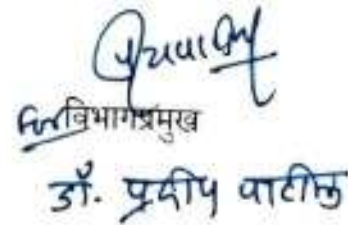 For विभागप्रमुख
डॉ. प्रदीप पाटील